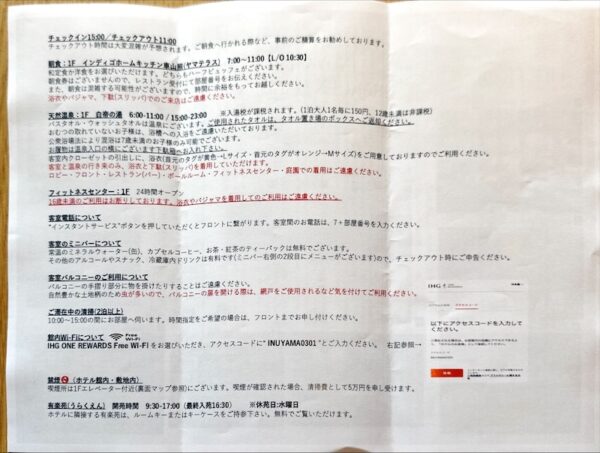 チェックイン15:00／チェックアウト11:00
チェックアウト時間は大変混雑が予想されます。ご朝食へ行かれる際など、事前のご精算をお勧めしております。
朝食：1F　インディゴホームキッチン車山照(ヤマテラス)　7:00～11:00【L/O 10:30】
和定食か洋食をお選びいただけます。どちらもハーフビュッフェがございます。
朝食券はございませんので、レストラン受付にて部屋番号をお伝えください。
また、朝食は混雑する可能性がございますので、時間に余裕をもってお越しください。
浴衣やパジャマ、下駄(スリッパ)でのご来店はご遠慮ください。
天然温泉：1F　白帝の湯　6:00-11:00 / 15:00-23:00　※入湯税が課税されます。(1泊大人1名毎に150円、12歳未満は非課税)
バスタオル・ウォッシュタオルは温泉にございます。ご使用されたタオルは、タオル置き場のボックスへご返却ください。
おむつの取れていないお子様は、浴槽への入浴をご遠慮いただいております。
公衆浴場法により混浴は7歳未満のお子様のみ可能でございます。
お履物は温泉入口のにございます下駄箱へお入れ下さい。
客室内クローゼットの引出しに、浴衣(首元のタグが黄色→Lサイズ・首元のタグがオレンジ→Mサイズ)をご用意しておりますのでご利用ください。
客室と温泉の行き来のみ、浴衣と下駄(スリッパ)を着用していただけます。
ロビー・フロント・レストラン(バー)・プールサイド・フィットネスセンター・庭園での着用はご遠慮ください。
フィットネスセンター：1F　24時間オープン
16歳未満のご利用はお断りしております。浴衣やパジャマを着用してのご利用はご遠慮ください。
客室電話について
“インスタントサービス”ボタンを押していただくとフロントに繋がります。客室間のお電話は、7＋部屋番号を入力ください。
客室のミニバーについて
常温のミネラルウォーター(缶)、カプセルコーヒー、お茶・紅茶のティーバックは無料でございます。
その他のアルコールやスナック、冷蔵庫内ドリンクは有料です(ミニバー右側の2段目にメニューがございます)ので、チェックアウト時にご申告ください。
客室バルコニーのご利用について
バルコニーの手摺り部分に物を掛けたりすることはご遠慮ください。
自然豊かな土地柄のため虫が多いので、バルコニーの扉を開ける際は、網戸をご使用されるなど気を付けてご利用ください。
ご滞在中の清掃(2泊以上)
10:00～15:00の間にお部屋へ伺います。時間指定をご希望の場合は、フロントまでお申し付けください。
館内Wi-Fiについて Free Wi-Fi
IHG ONE REWARDS Free Wi-Fi をお選びいただき、アクセスコードに“ INUYAMA0301 ”とご入力ください。　右記参照→
IHG
以下にアクセスコードを入力してください。
禁煙（ホテル館内・敷地内）
喫煙所は1Fエレベーター付近(裏面マップ参照)にございます。喫煙が確認された場合、清掃費として5万円を申し受けます。
有楽苑(うらくえん)　開苑時間　9:30-17:00（最終入苑16:30）　※休苑日:水曜日
ホテルに隣接する有楽苑は、ルームキーまたはキーケースをご持参下さい。無料でご覧いただけます。